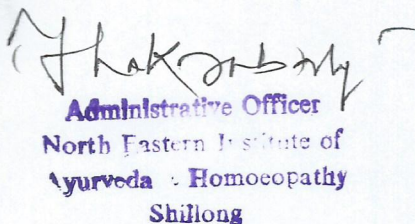 Administrative Officer
North Eastern Institute of
Ayurveda & Homoeopathy
Shillong